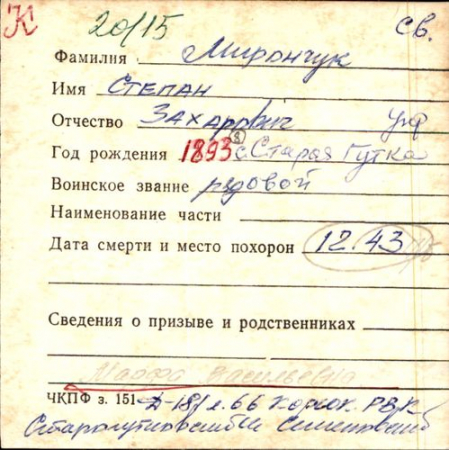 К 20/15 св.
Фамилия Мирончук
Имя Степан
Отчество Захарович укр
Год рождения 1893 с. Старая Гутка
Воинское звание рядовой
Наименование части
Дата смерти и место похорон 12.43
Сведения о призыве и родственниках
Васильевна
ЧКПФ з. 151 Д-18/л.66 РВК